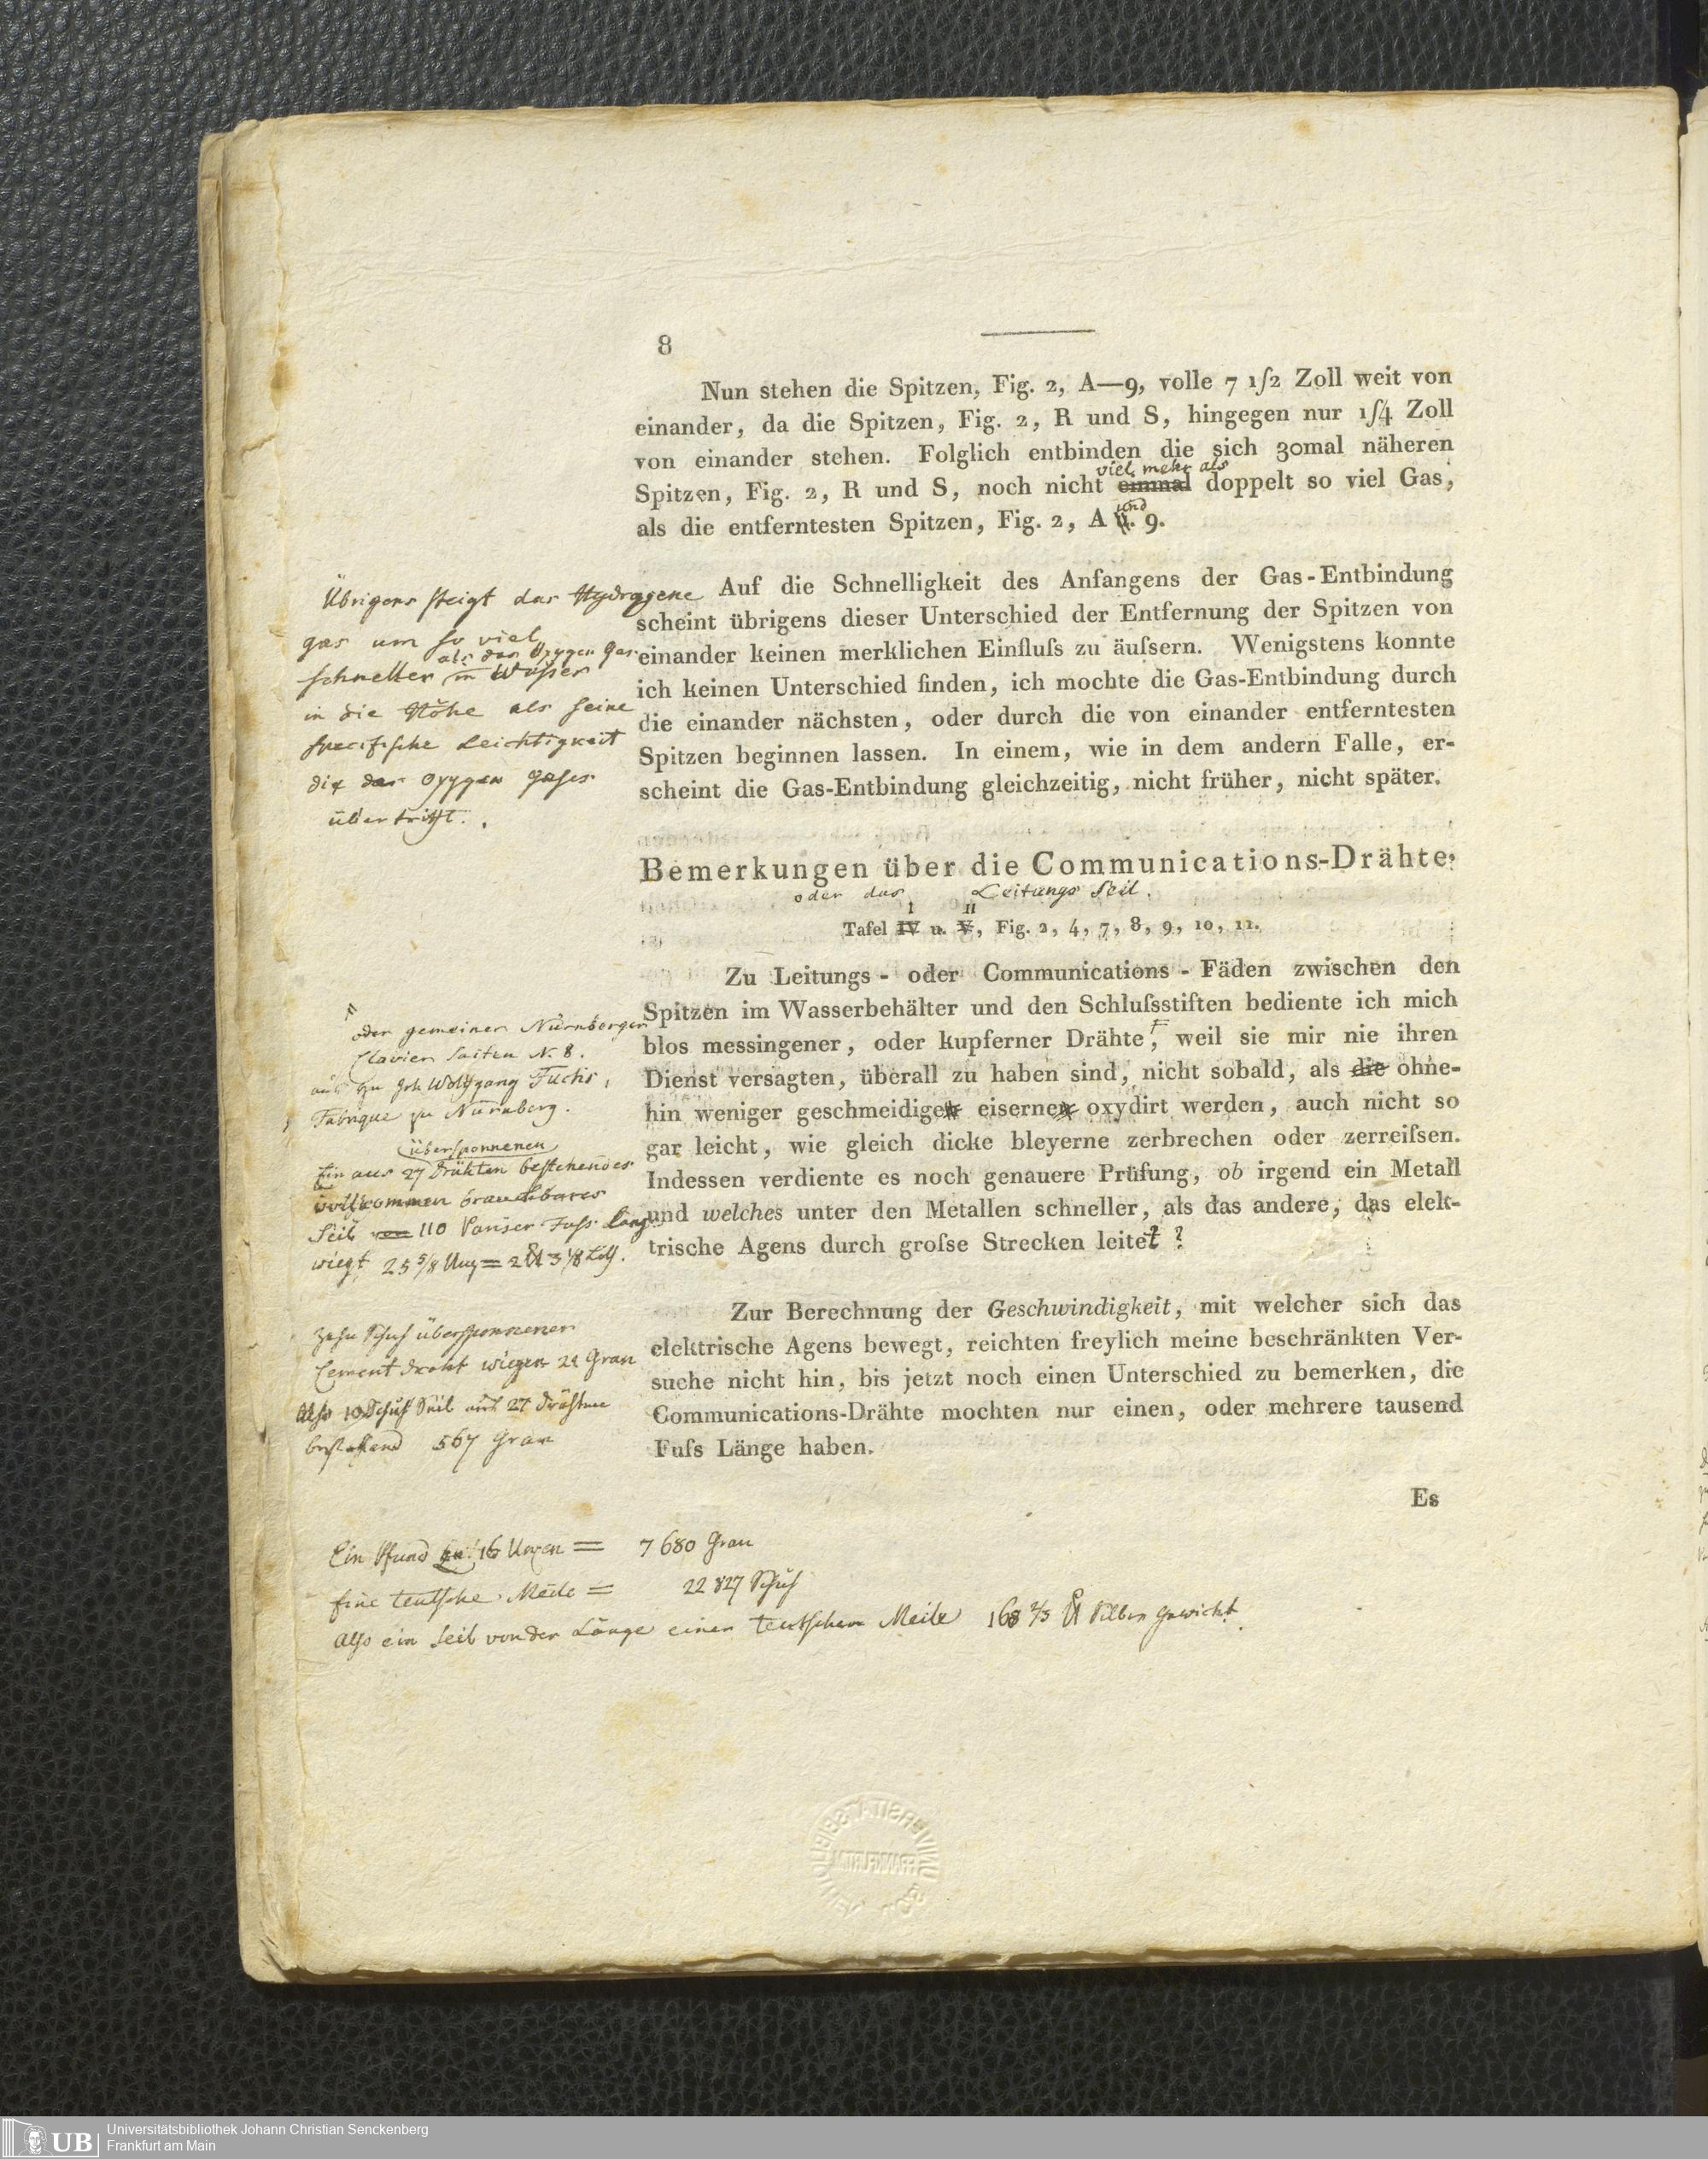 8
Nun stehen die Spitzen, Fig. 2, A—9, volle 7 1/2 Zoll weit von
einander, da die Spitzen, Fig. 2, R und S, hingegen nur 1/4 Zoll
von einander stehen. Folglich entbinden die sich 30mal näheren
viel mehr als
Spitzen, Fig. 2, R und S, noch nicht einmal doppelt so viel Gas,
und
als die entferntesten Spitzen, Fig. 2, A u. 9.
Auf die Schnelligkeit des Anfangens der Gas-Entbindung
scheint übrigens dieser Unterschied der Entfernung der Spitzen von
einander keinen merklichen Einfluſs zu äuſsern. Wenigstens konnte
ich keinen Unterschied finden, ich mochte die Gas-Entbindung durch
die einander nächsten, oder durch die von einander entferntesten
Spitzen beginnen lassen. In einem, wie in dem andern Falle, er-
scheint die Gas-Entbindung gleichzeitig, nicht früher, nicht später.
Übrigens steigt das Hydrogene
gas um so viel
als das Oxygen Gas
schneller in Wasser
in die Höhe als seine
specifische Leichtigkeit
die des Oxygen gases
übertrifft.
Bemerkungen über die Communications-Drähte,
oder das Leitungs Seil.
I II
Tafel IV u. V, Fig. 2, 4, 7, 8, 9, 10, 11.
Zu Leitungs- oder Communications-Fäden zwischen den
Spitzen im Wasserbehälter und den Schluſsstiften bediente ich mich
blos messingener, oder kupferner Drähte, weil sie mir nie ihren
Dienst versagten, überall zu haben sind, nicht sobald, als die ohne-
hin weniger geschmeidige eiserne oxydirt werden, auch nicht so
gar leicht, wie gleich dicke bleyerne zerbrechen oder zerreiſsen.
Indessen verdiente es noch genauere Prüfung, ob irgend ein Metall
und welches unter den Metallen schneller, als das andere, das elek-
trische Agens durch groſse Strecken leitet?
oder gemeiner Nürnberger
Clavier Saiten N. 8.
aus der Joh. Wolfgang Fuchs,
Fabrique zu Nürnberg.
übersponnenen
Ein aus 27 Drähten bestehendes
vollkommen brauchbares
Seil von 110 Pariser Fuss lang
wiegt 25 5/8 Unz = 2 ℔ 3 1/8 Loth.
Zur Berechnung der Geschwindigkeit, mit welcher sich das
elektrische Agens bewegt, reichten freylich meine beschränkten Ver-
suche nicht hin, bis jetzt noch einen Unterschied zu bemerken, die
Communications-Drähte mochten nur einen, oder mehrere tausend
Fuſs Länge haben.
Zehn Schuh übersponnener
Cement draht wiegen 21 Gran
Also 10 Schuh Seil aus 27 Drähten
bestehend 567 Gran
Es
Ein Pfund zu 16 Unzen = 7680 Gran
Eine teutsche Meile = 22 827 Schuh
Also ein Seil von der Länge einer teutschen Meile 168 2/3 ℔ Silber gewicht.
UB
Universitätsbibliothek Johann Christian Senckenberg
Frankfurt am Main